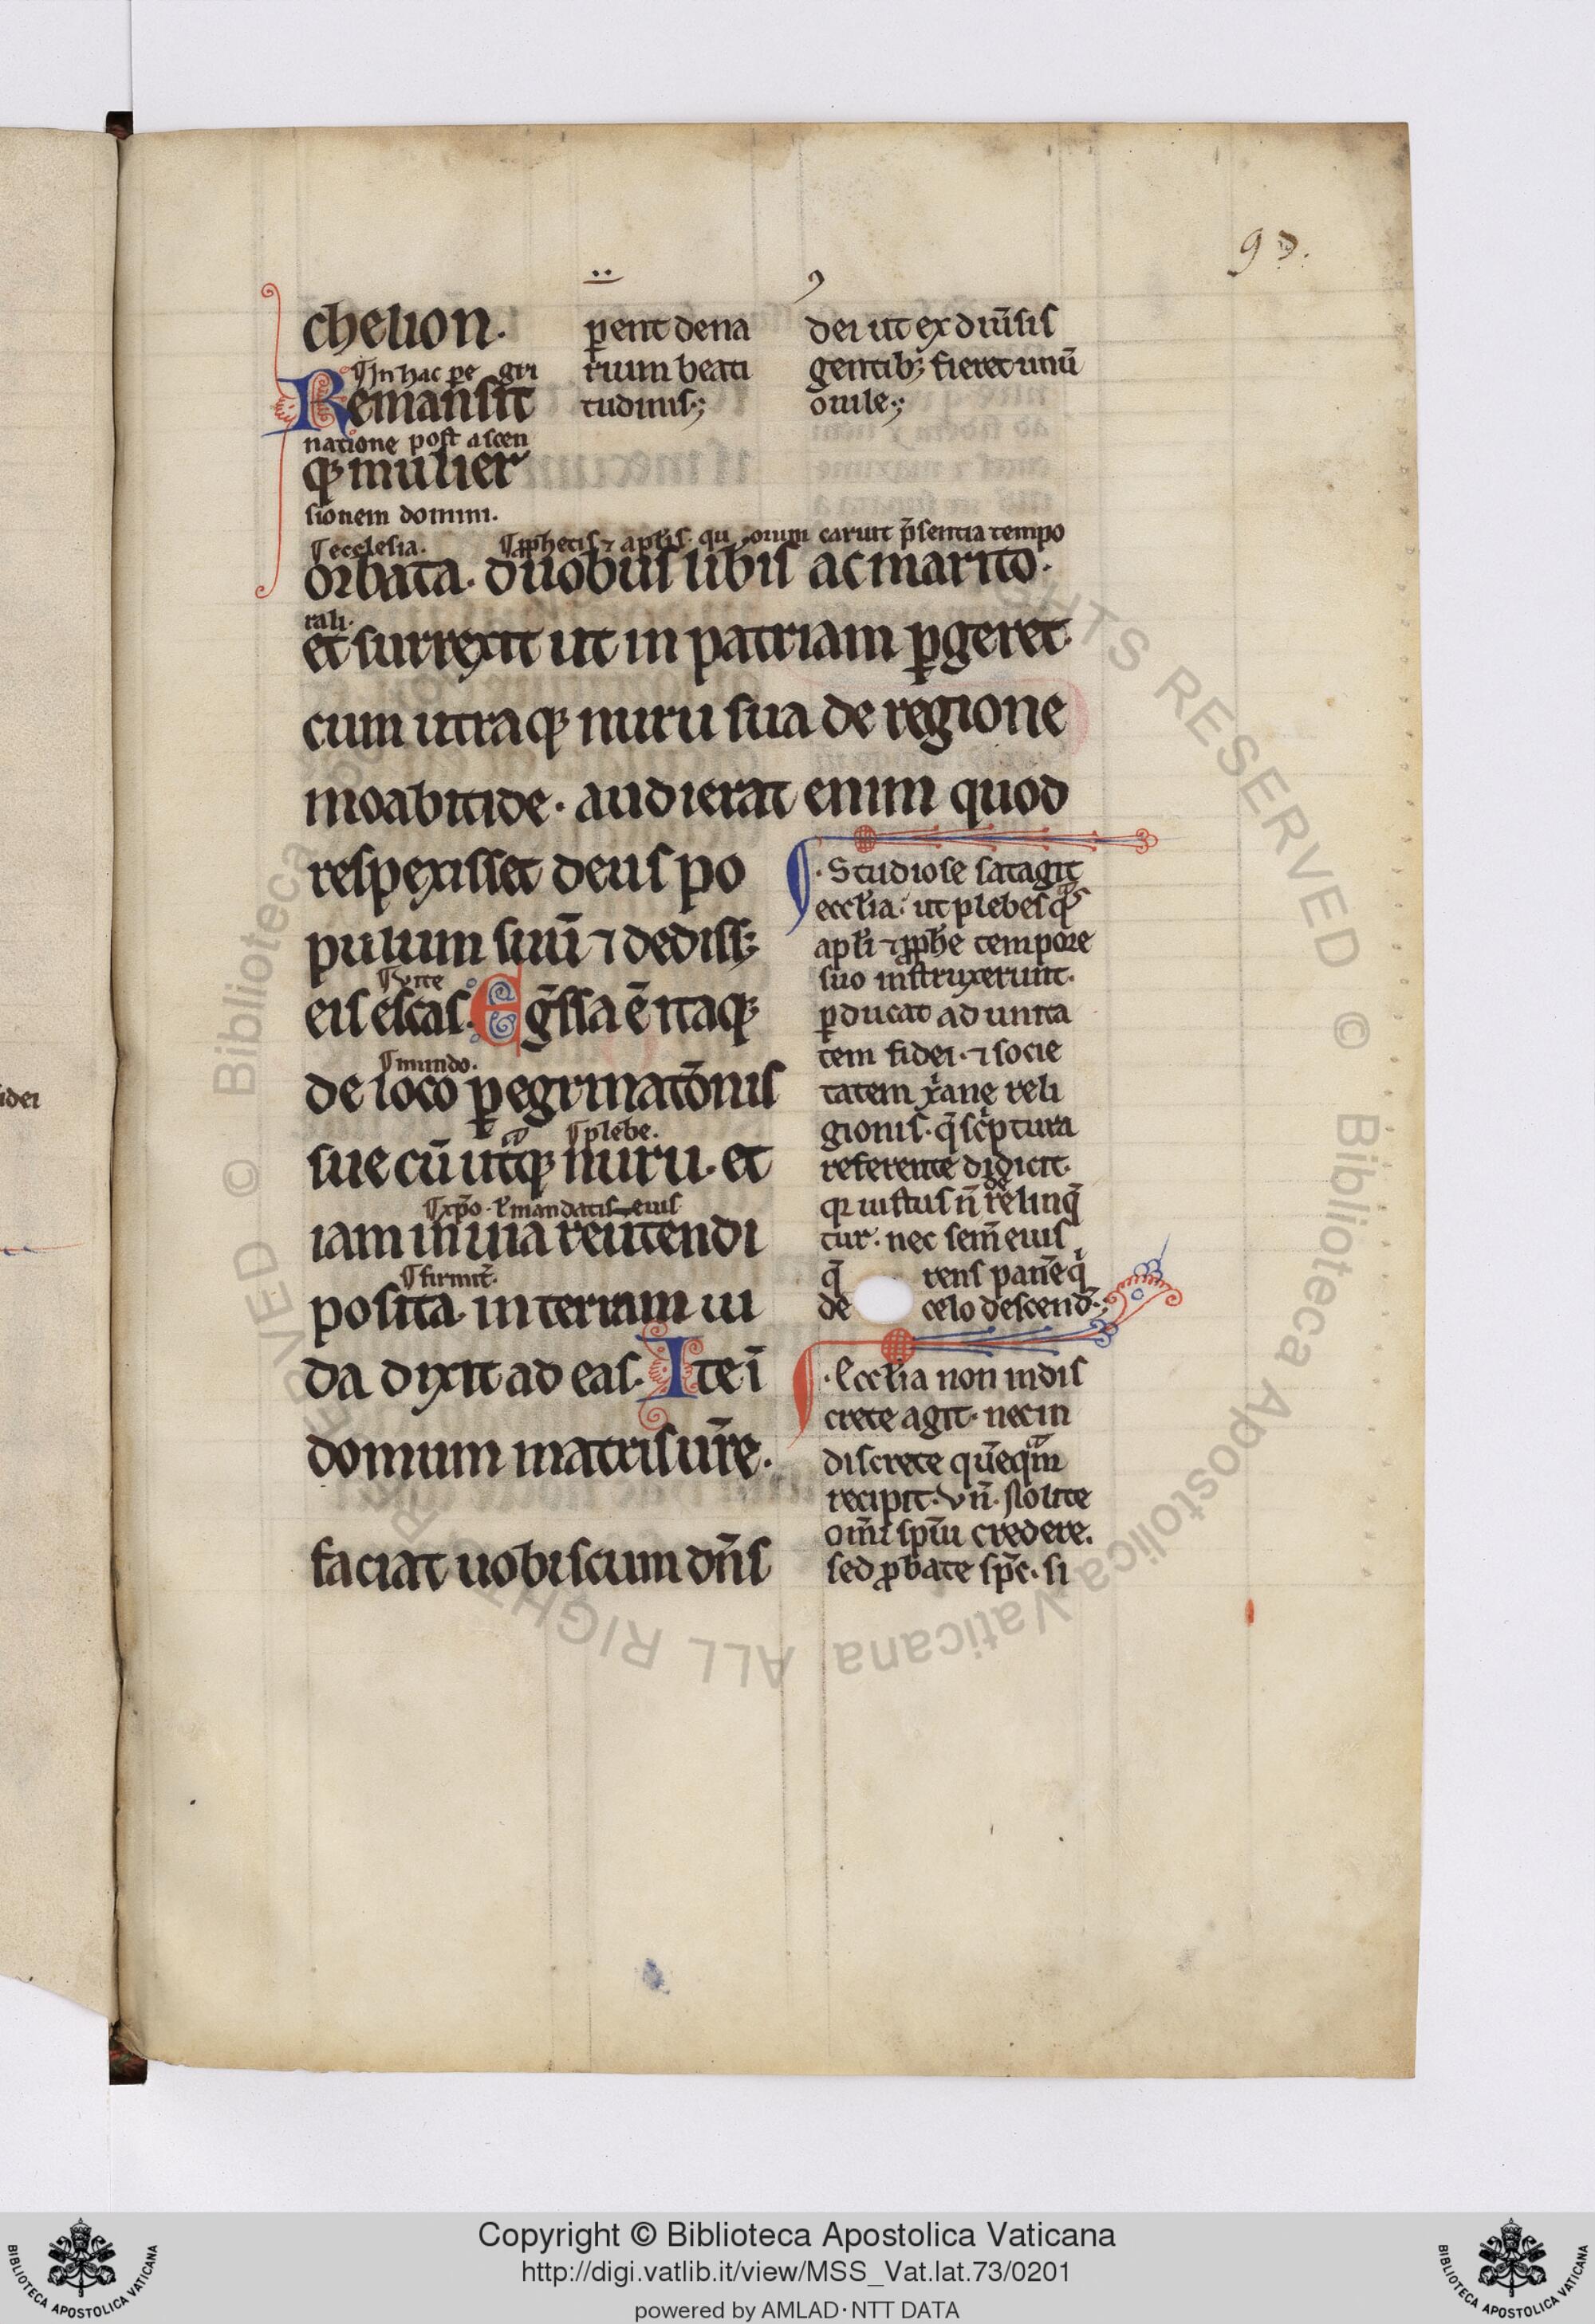 93.
chelion.
¶In hac pe gri
Remansit
natione post ascen
q; mulier
sionem domini.
p̲ent dena
rium beati
tudinis;
dei ut ex diu̅sis
gentib; fieret unu̅
ouile;
¶ecclesia. ¶p̲phetis ⁊ apl̅is. quorum caruit p̅sentia tempo
orbata. duobus libis ac marito.
rali.
et surrexit ut in patriam p̲geret
cum utraq; nuru sua de regione
moabitide. audierat enim quod
respexisset deus po
pulum suu̅ ⁊ dediss;
¶vite
eis escas. Eg̅ssa e̅ itaq;
¶mundo.
de loco p̲egrinato̅nis
¶plebe.
sue cu̅ utᵃq; nuru. et
¶xp̅o. ł mandatis eius
iam in uia reutendi
¶firmit̅.
posita. in terram iu
da dixit ad eas. Ite i̅
domum matris ur̅e.
faciat uobiscum dn̅s
Studiose satagit
eccl̅ia. ut plebes qᵃs
apl̅i ⁊ p̲ph̅e tempore
suo instruxerunt.
p̲ducat ad unita
tem fidei. ⁊ socie
tatem xⁱane reli
gionis. q̅ sc̅ptura
referente didicit.
qr iustus n̅ derelinq̅
tur. nec sem̅ eius
q̅ rens pane̅ qⁱ
de celo descend̅.;
Eccl̅ia non indis
crete agit. nec in
discrete que̅qᵃm
recipit. Vn̅. Nolite
om̅i sp̅ui credere.
sed p̲bate sp̅c. si
idei
Copyright © Biblioteca Apostolica Vaticana
http://digi.vatlib.it/view/MSS_Vat.lat.73/0201
powered by AMLAD·NTT DATA
BIBLIOTECA APOSTOLICA VATICANA
BIBLIOTECA APOSTOLICA VATICANA
© Biblioteca Apostolica Vaticana ALL RIGHTS RESERVED